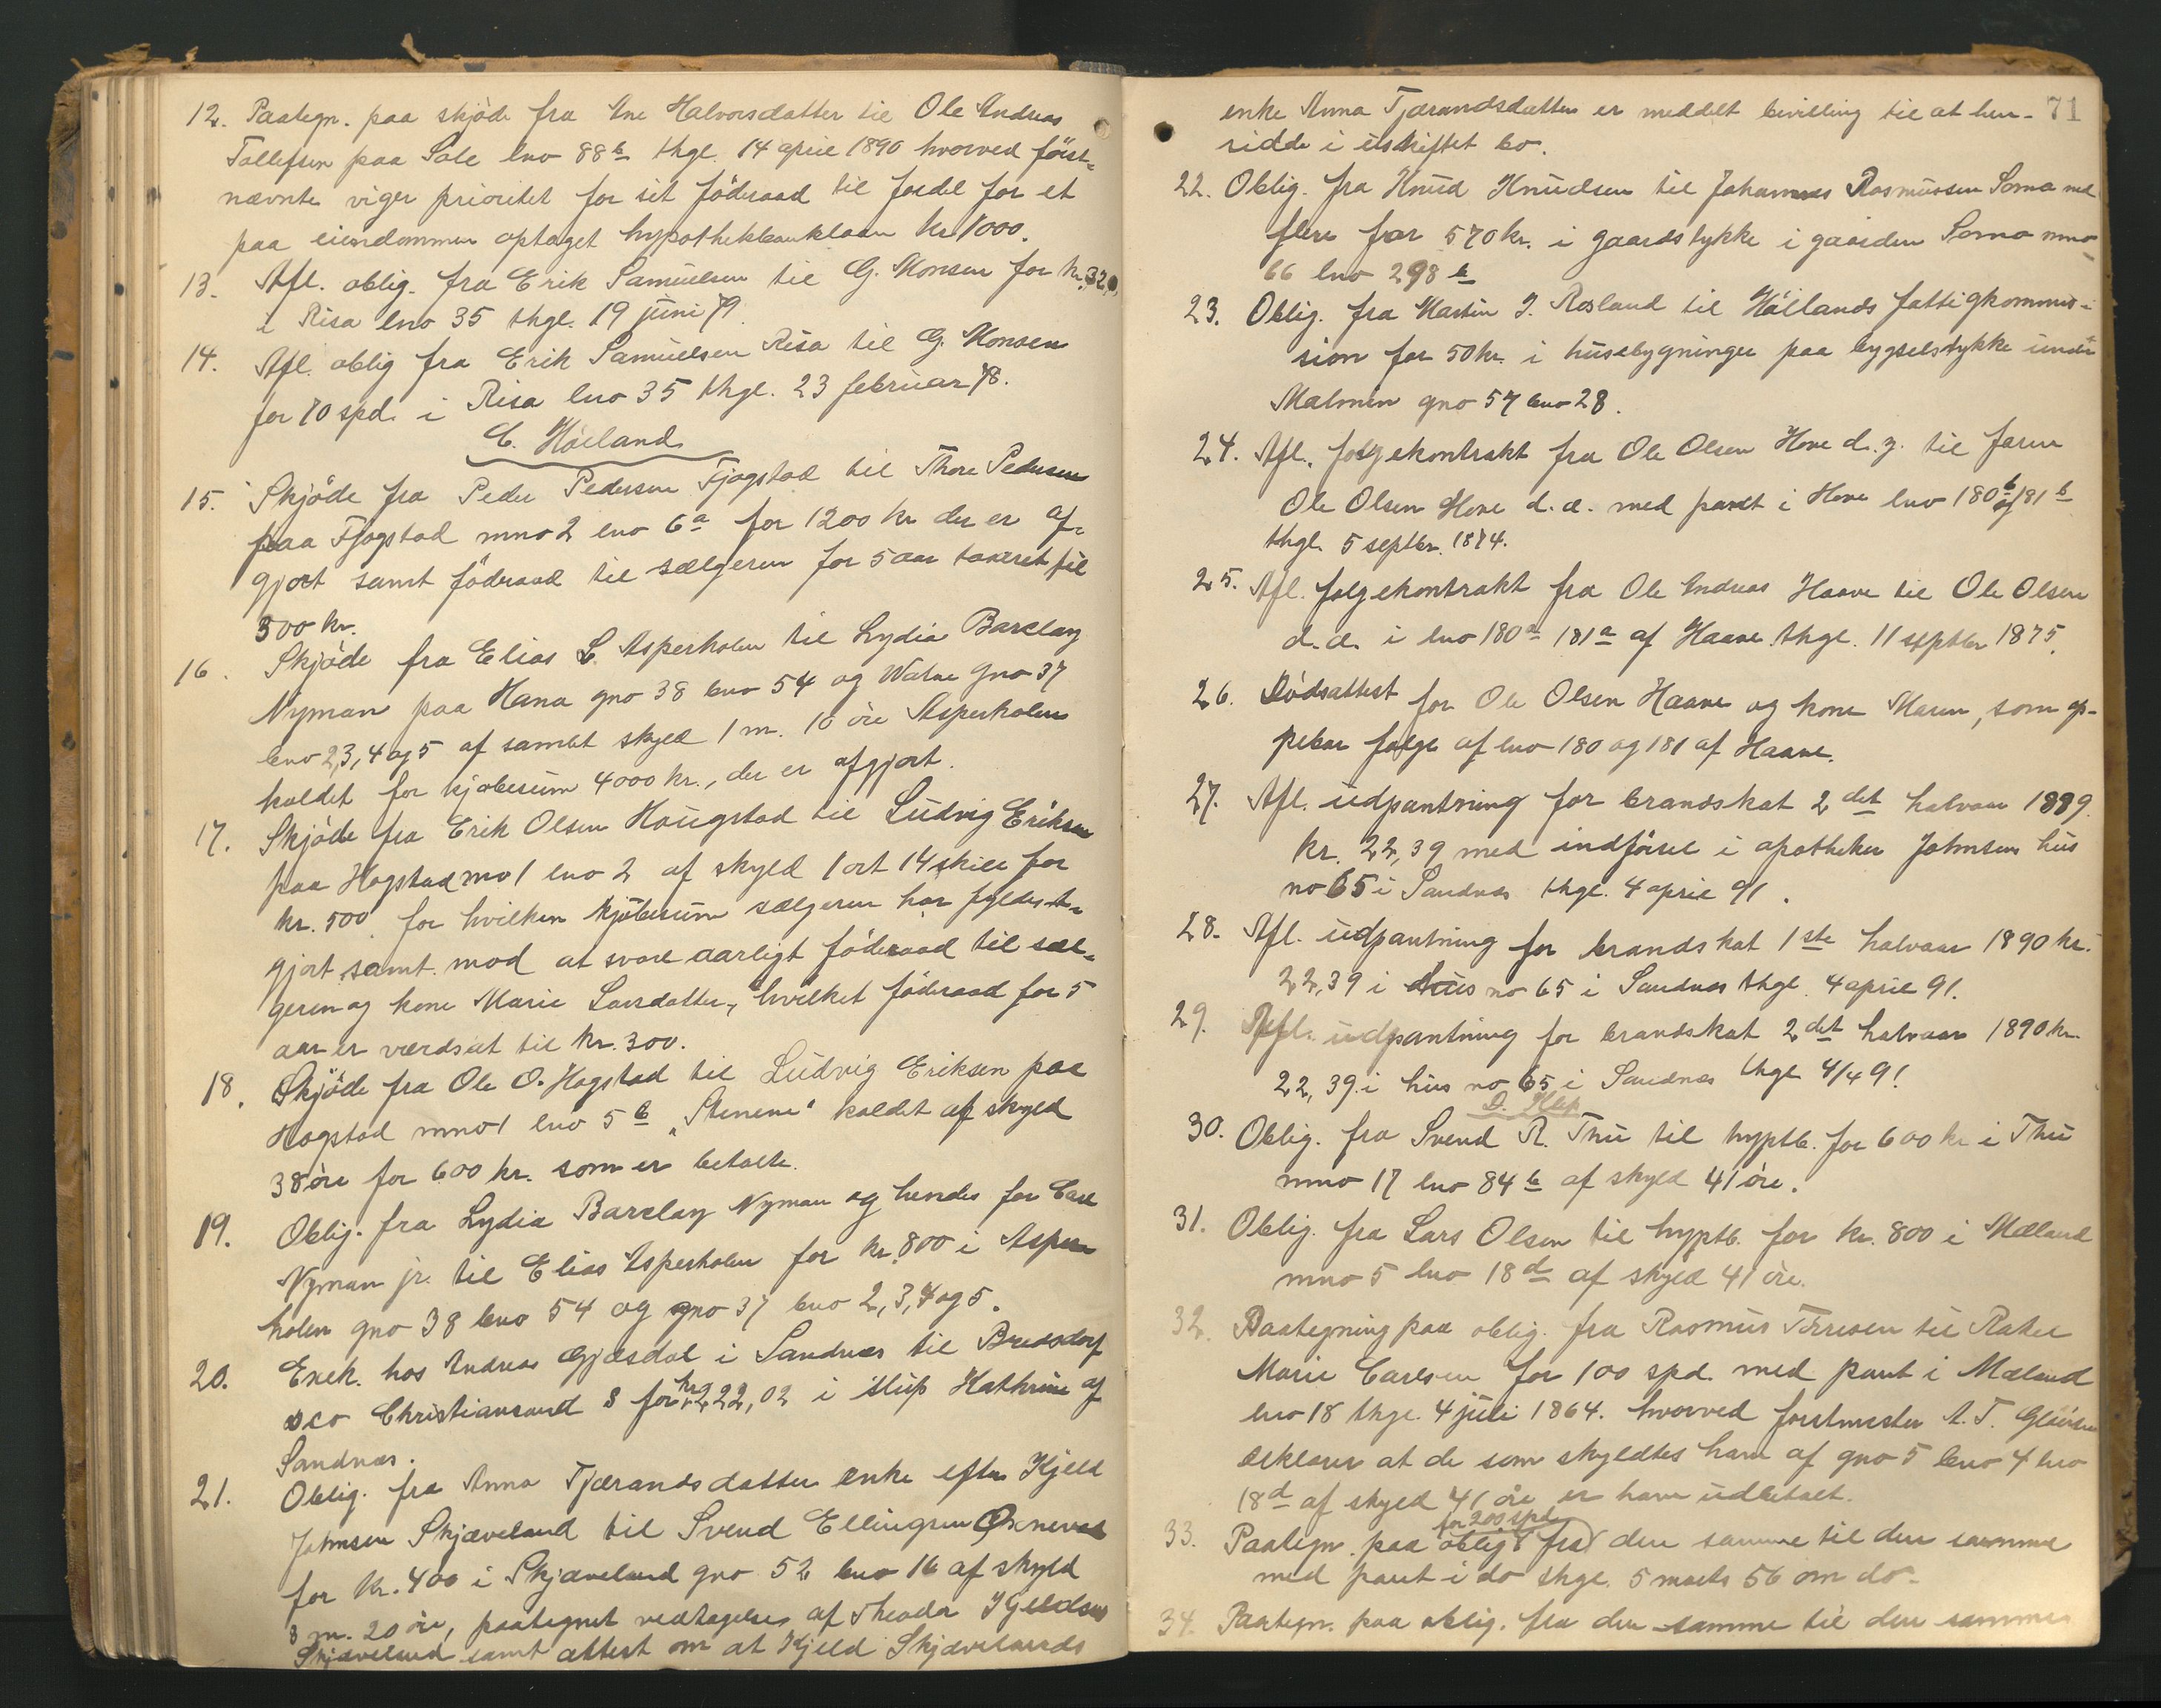 12. Paategn. paa skjöde fra Ane Halvorsdatter til Ole Andreas
Tollefsen paa Sole lno 88b thgl. 14 april 1890 hvorved först-
nævnte viger prioritet for sit föderaad til fordel for et
paa eiendommen optaget hypothekbanklaan kr. 1000.
13. Afl. oblig. fra Erik Samuelsen til G. Monsen for kr. 320,
i Risa lno 35 thgl. 19 juni 79.
14. Afl. oblig fra Erik Samuelsen Risa til G. Monsen
for 70 spd. i Risa lno 35 thgl. 23 februar 78.
C. Höiland
15. Skjöde fra Peder Pedersen Fjogstad til Thore Pedersen
paa Fjogstad mno 2 lno 6a for 1200 kr der er af-
gjort samt föderaad til sælgeren for 5 aar taxeret til
500 kr.
16. Skjöde fra Elias L. Asperholen til Lydia Barclay
Nyman paa Hana gno 38 bno 54 og Watne gno 37
bno 2,3,4 og 5 af samlet skyld 1 m. 10 öre Asperholen
kaldet for kjöbesum 4000 kr., der er afgjort.
17. Skjöde fra Erik Olsen Haugstad til Ludvig Eriksen
paa Hogstad mno 1 lno 2 af skyld 1 ort 14 skill for
kr. 500 for hvilken kjöbesum sælgeren har fyldest-
gjort samt mod at svare aarligt föderaad til sæl-
geren og kone Marie Larsdatter, hvilket föderaad for 5
aar er værdsat til kr. 300.
18. Skjöde fra Ole O. Hogstad til Ludvig Eriksen paa
Hogstad mno 1 lno 5b "Stenene" kaldet af skyld
38 öre for 600 kr. som er betalte.
19. Oblig. fra Lydia Barclay Nyman og hendes far Carl
Nyman jr. til Elias Asperholen for kr. 800 i Asper-
holen gno 38 bno 54 og gno 37 bno 2,3,4 og 5.
20. Exek. hos Andreas Gjæsdal i Sandnæs til
& co Christiansand S for kr. 222,02 i slup Kathrine af
Sandnæs.
21. Oblig. fra Anna Tjærandsdatter enke efter Kjeld
Johnsen Skjæveland til Svend Ellingsen Oxnevad
for kr. 400 i Skjæveland gno 52 bno 16 af skyld
8 m. 20 öre, paategnet vedtagelse af Theodor Kjeldsen
Skjæveland samt attest om at Kjeld Skjævelands
71
enke Anna Tjærandsdatter er meddelt bevilling til at hen-
sidde i uskiftet bo.
22. Oblig. fra Knud Knudsen til Johannes Rasmussen Soma med
flere for 570 kr. i gaardstykke i gaarden Soma mno
66 lno 298b
23. Oblig. fra Martin J. Rosland til Höilands fattigkommis-
sion for 50 kr. i husebygninger paa bygselstykke under
Malmin gno 57 bno 28.
24. Afl. folgekontrakt fra Ole Olsen Hove d. y. til faren
Ole Olsen Hove d. æ. med pant i Hove lno 180b og 181b
thgl. 5 septbr. 1874.
25. Afl. folgekontrakt fra Ole Andreas Haave til Ole Olsen
d. æ. i lno 180a 181a af Haave thgl. 11 septbr 1875.
26. Dödsattest for Ole Olsen Haave og kone Maren, som op-
pebar folge af lno 180 og 181 af Haave.
27. Afl. udpantning for brandskat 2det halvaar 1889.
kr. 22,39 med indförsel i apotheker Johnsens hus
no 65 i Sandnæs thgl. 4 april 91.
28. Afl. udpantning for brandskat 1ste halvaar 1890 kr.
22,39 i hus no 65 i Sandnæs thgl. 4 april 91.
29. Afl. udpantning for brandskat 2det halvaar 1890 kr.
22,39 i hus no 65 i Sandnæs thgl 4/4 91
D. Klep
30. Oblig. fra Svend R. Thu til hyptb. for 600 kr i Thu
mno 17 lno 84b af skyld 41 öre.
31. Oblig. fra Lars Olsen til hyptb. for kr. 800 i Mæland
mno 5 lno 18d af skyld 41 öre.
32. Paategning paa oblig. fra Rasmus Törresen til Rakel
Marie Carlsen for 100 spd. med pant i Mæland
lno 18 thgl. 4 juli 1864. hvorved forstmester A. T. Glöersen
erklærer at de som skyldtes ham af gno 5 bno 4 lno
18d af skyld 41 öre er ham udbetalt.
33. Paategn. paa oblig for 200 spd. fra den samme til den samme
med pant i do thgl. 5 marts 56 om do.
34. Paategn. paa oblig. fra den samme til den samme